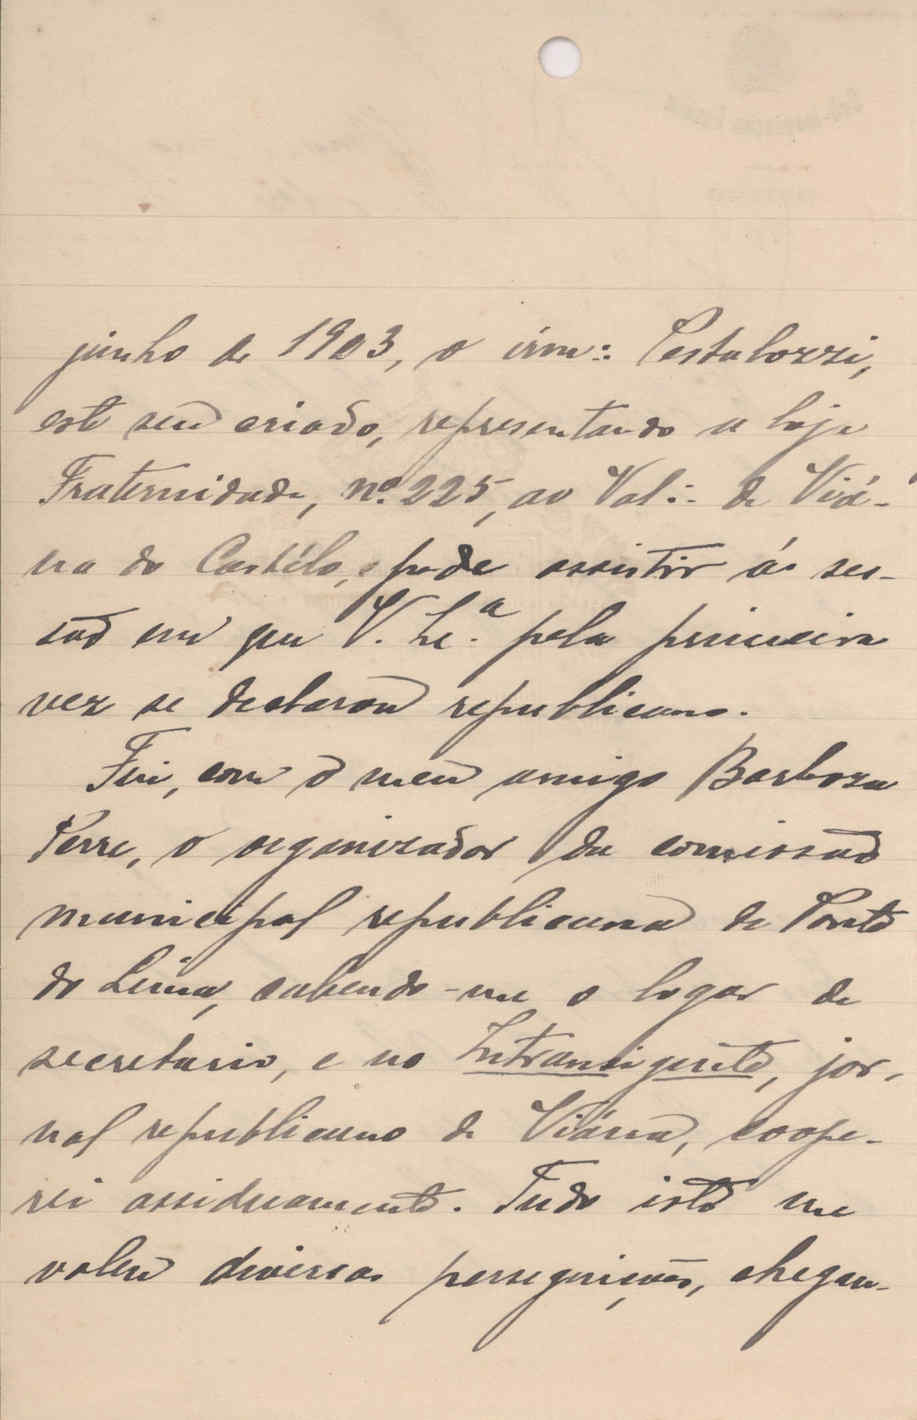 junho de 1903, o irm∴ Pestalozzi,
este seu criado, representando a loja
Fraternidade, nº 225, ao Val∴ de Viá-
na do Castélo, pode assistir á ses-
são em que V. Ex.ª pela primeira
vez se declarou republicano.
Fui, com o meu amigo Barboza
Perre, o organizador da comissão
municipal republicana de Ponte
do Lima, cabendo-me o logar de
secretario, e no Intransigente, jor-
nal republicano de Viána, coope-
rei assiduamente. Tudo isto me
valeu diversas perseguições, chegan-